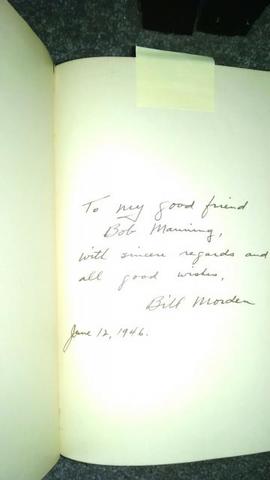 To my good friend
Bob Manning,
with sincere regards and
all good wishes,
Bill Morden
June 12, 1946.